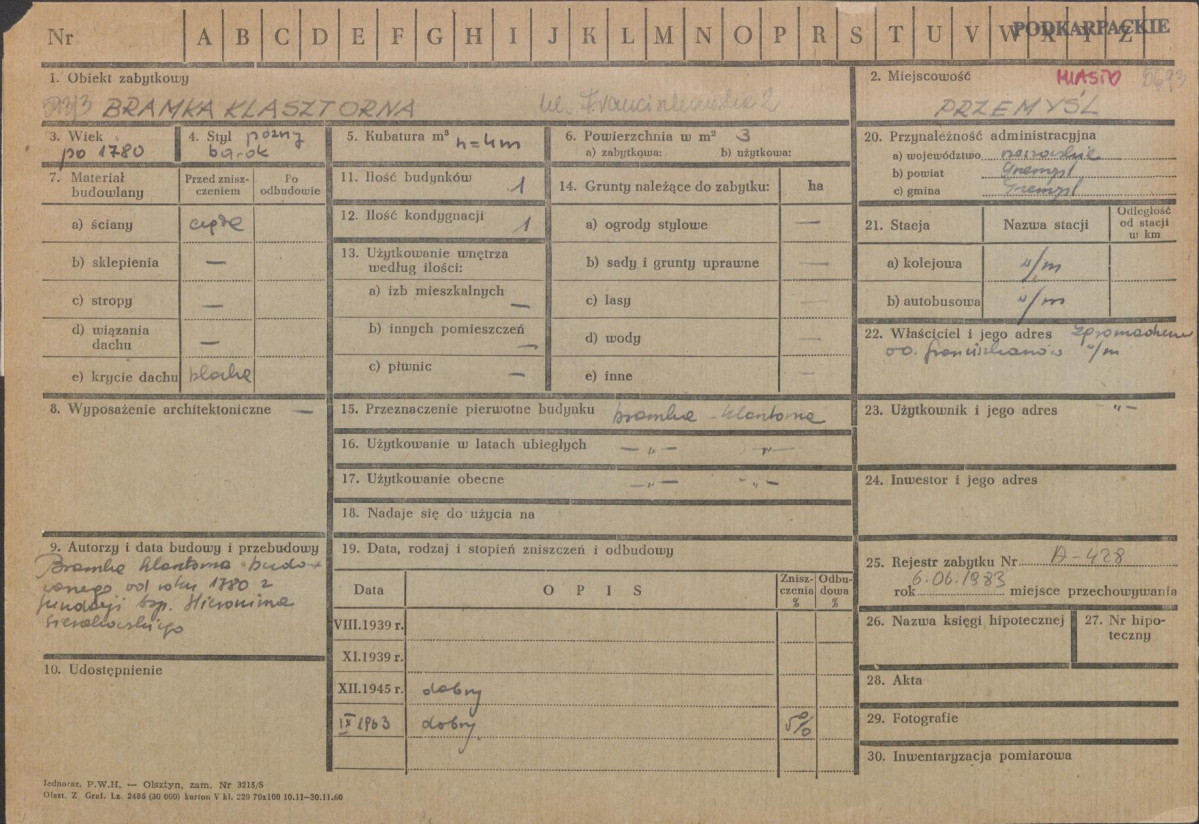 Nr A B C D E F G H I J K L M N O P R S T U V W X Y Z
PODKARPACKIE
1. Obiekt zabytkowy
BRAMKA KLASZTORNA ul. Franciszkańska 2
2. Miejscowość MIASTO
PRZEMYŚL
3. Wiek
po 1780
4. Styl późny
barok
5. Kubatura m³ h=4m
6. Powierzchnia w m² 3
a) zabytkowa: b) użytkowa:
7. Materiał
budowlany
Przed znisz-
czeniem
Po
odbudowie
a) ściany cegła
b) sklepienia —
c) stropy —
d) wiązania
dachu —
e) krycie dachu blacha
8. Wyposażenie architektoniczne —
9. Autorzy i data budowy i przebudowy
Bramka klasztorna budo-
wanego od roku 1780 z
fundacji bp. Hieronima
Sierakowskiego
10. Udostępnienie
11. Ilość budynków 1
12. Ilość kondygnacji 1
13. Użytkowanie wnętrza
według ilości:
a) izb mieszkalnych —
b) innych pomieszczeń —
c) piwnic —
14. Grunty należące do zabytku: ha
a) ogrody stylowe —
b) sady i grunty uprawne —
c) lasy —
d) wody —
e) inne —
15. Przeznaczenie pierwotne budynku bramka klasztorna
16. Użytkowanie w latach ubiegłych —„— —„—
17. Użytkowanie obecne —„— —„—
18. Nadaje się do użycia na
19. Data, rodzaj i stopień zniszczeń i odbudowy
Data O P I S Znisz-
czenia
% Odbu-
dowa
%
VIII.1939 r.
XI.1939 r.
XII.1945 r. dobry
IX 1963 dobry 5%
20. Przynależność administracyjna
a) województwo rzeszowskie
b) powiat Przemyśl
c) gmina Przemyśl
21. Stacja Nazwa stacji Odległość
od stacji
w km
a) kolejowa w/m
b) autobusowa w/m
22. Właściciel i jego adres Zgromadzenie
oo. franciszkanów w/m
23. Użytkownik i jego adres —„—
24. Inwestor i jego adres
25. Rejestr zabytku Nr A-428
rok 6.06.1983 miejsce przechowywania
26. Nazwa księgi hipotecznej
27. Nr hipo-
teczny
28. Akta
29. Fotografie
30. Inwentaryzacja pomiarowa
Jednoraz. P.W.H. — Olsztyn, zam. Nr 3215/S
Olszt. Z. Graf. Lz. 2485 (30 000) karton V kl. 220 70x100 10.11—30.11.60